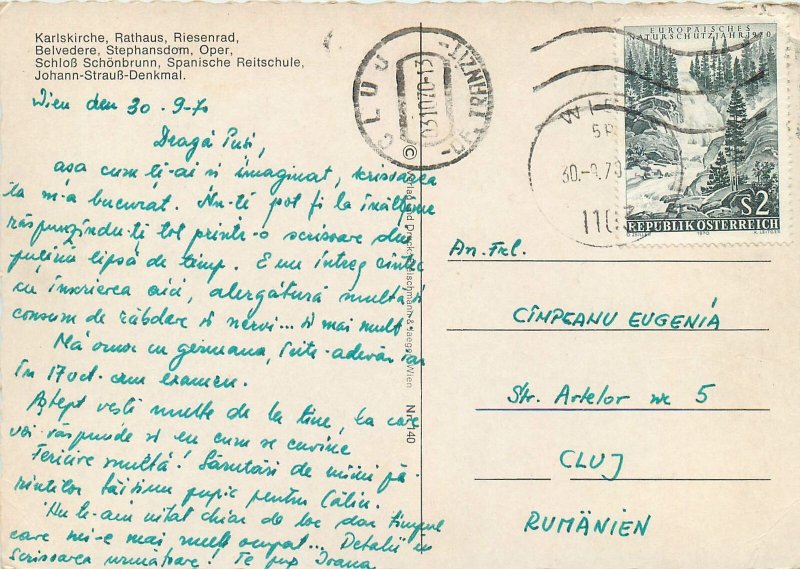 Karlskirche, Rathaus, Riesenrad,
Belvedere, Stephansdom, Oper,
Schloß Schönbrunn, Spanische Reitschule,
Johann-Strauß-Denkmal.
Wien den 30.9-70
Dragă Puși,
așa cum ți-ai și imaginat, scrisoarea
ta m-a bucurat. Nu-ți pot fi la înălțime
răspunzîndu-ți tot printr-o scrisoare din
puțină lipsă de timp. E un întreg cîntec
cu înscrierea aici, alergătură multă și
consum de răbdare și nervi... și mai mult
Mă omor cu germana, într-adevăr iar
în 17 oct. am examen.
Aștept vești multe de la tine, la care
voi răspunde și eu cum se cuvine
Fericire multă! Sărutări de mîini pă-
rinților tăi, țium pupic pentru Călin.
Nu te-am uitat chiar de loc dar timpul
care mi-e mai mult ocupat... Detalii în
scrisoarea următoare! Te pup Ioana
CLUJ
031070-13
TRANZIT
EUROPÄISCHES
NATURSCHUTZJAHR 1970
S2
REPUBLIK ÖSTERREICH
1970
WIEN
30.-9.70
1103
© Verlag und Druck Wien
Nr. 140
An. Frl.
CÎMPEANU EUGENIA
Str. Artelor nr 5
CLUJ
RUMÄNIEN